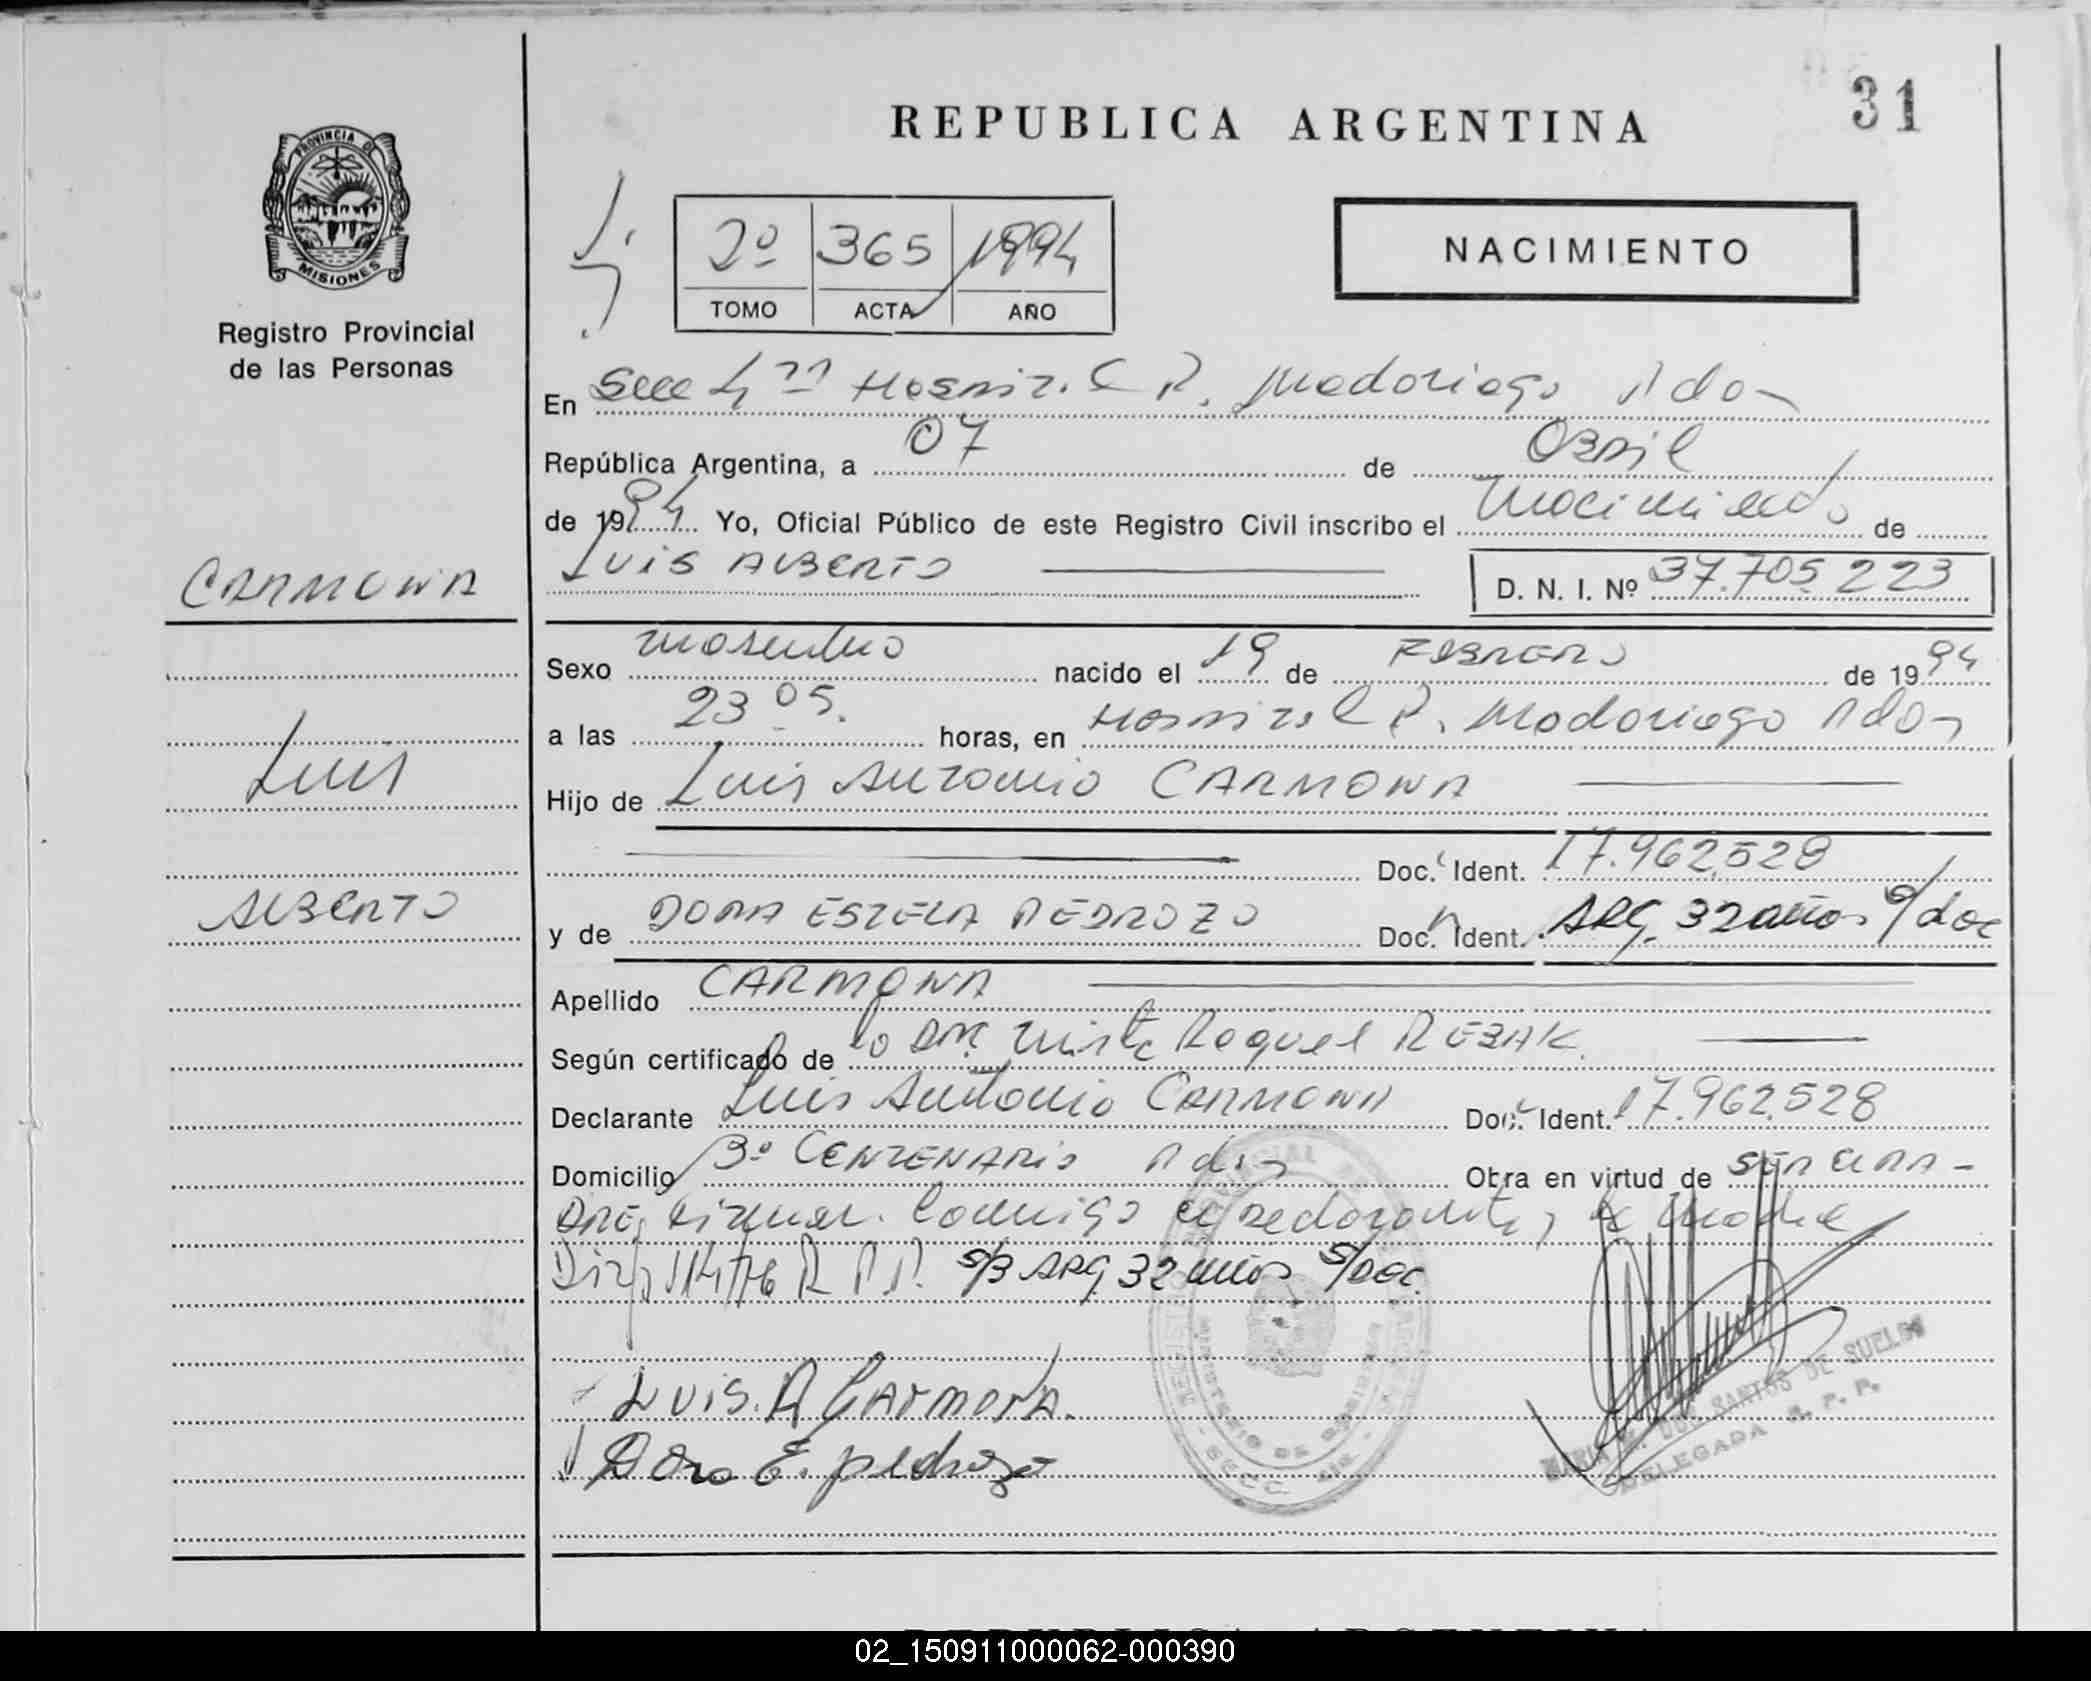 REPUBLICA ARGENTINA
31
PROVINCIA DE
MISIONES
Registro Provincial
de las Personas
2º 365 1994
TOMO ACTA AÑO
NACIMIENTO
En Secc 4ta Hospital R. Madariaga Pdas
República Argentina, a 07 de Abril
de 1994 Yo, Oficial Público de este Registro Civil inscribo el nacimiento de
LUIS ALBERTO
D. N. I. Nº 37.705.223
CARMONA
Luis
ALBERTO
Sexo masculino nacido el 19 de FEBRERO de 1994
a las 23 05. horas, en Hospital R. Madariaga Pdas
Hijo de Luis Antonio CARMONA
Doc. Ident. 17.962.528
y de DORA ESTELA PEDROZO Doc. Ident. ARG. 32 años s/doc
Apellido CARMONA
Según certificado de Raquel REBAK
Declarante Luis Antonio CARMONA Doc. Ident. 17.962.528
Domicilio Bº CENTENARIO Pdas Obra en virtud de
firman conmigo el declarante, la madre
s/B ARG. 32 años s/Doc.
LUIS. A CARMONA.
Dora E. pedrozo
MARIA DOS SANTOS DE SUELDO
DELEGADA R. P. P.
02_150911000062-000390